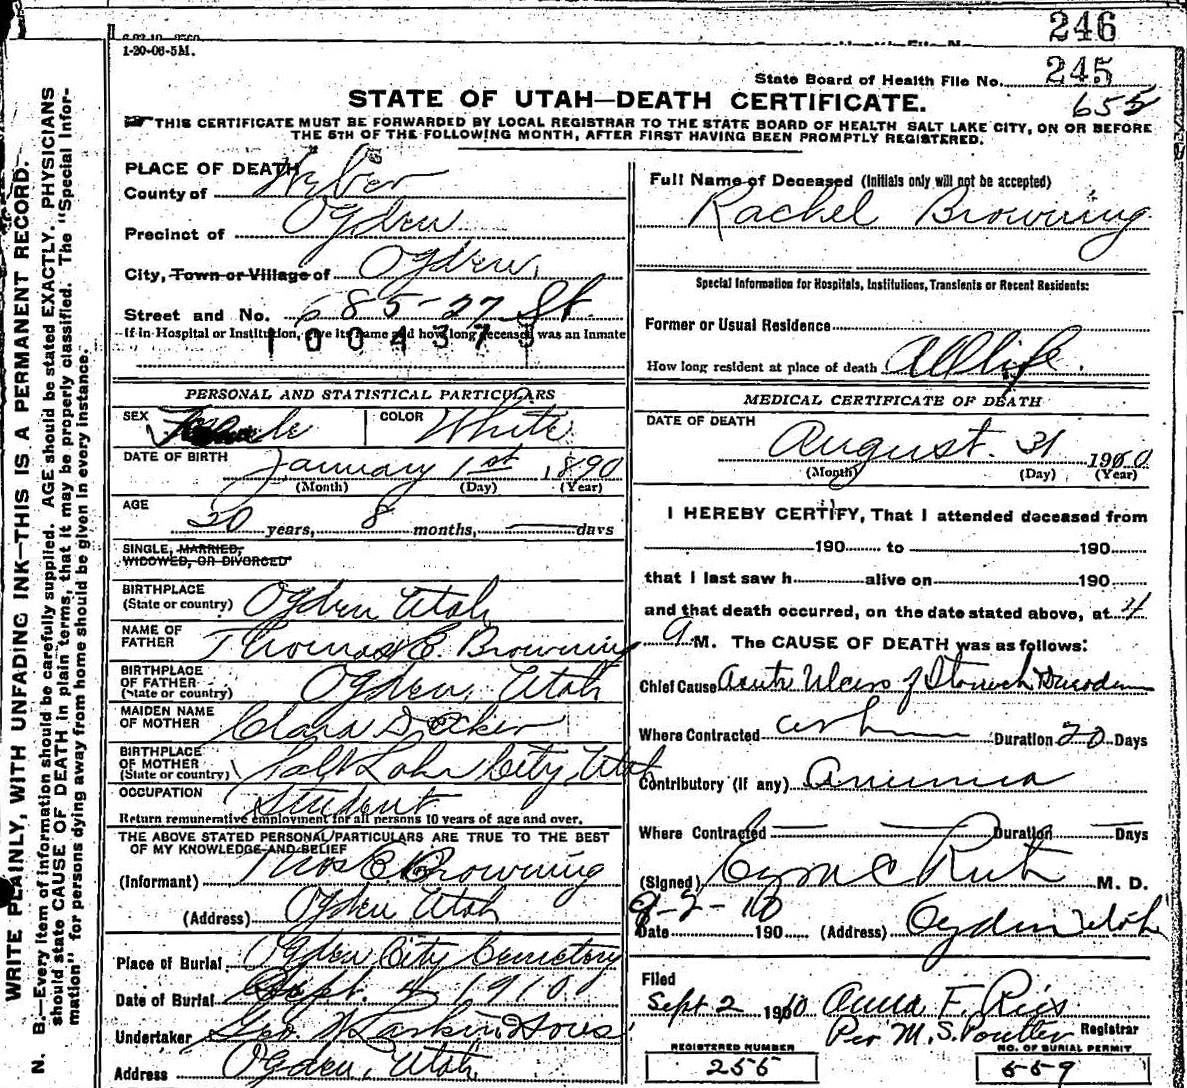 246
1-20-06-5M.
State Board of Health File No. 245
655
STATE OF UTAH—DEATH CERTIFICATE.
THIS CERTIFICATE MUST BE FORWARDED BY LOCAL REGISTRAR TO THE STATE BOARD OF HEALTH SALT LAKE CITY, ON OR BEFORE
THE 5TH OF THE FOLLOWING MONTH, AFTER FIRST HAVING BEEN PROMPTLY REGISTERED.
PLACE OF DEATH
County of Weber
Precinct of Ogden
City, Town or Village of Ogden
Street and No. 685-27 St.
If in Hospital or Institution, give its name and how long deceased was an inmate
1004373
PERSONAL AND STATISTICAL PARTICULARS
SEX Female COLOR White
DATE OF BIRTH
January 1st 1890
(Month) (Day) (Year)
AGE
20 years, 8 months, — days
SINGLE, MARRIED,
WIDOWED, OR DIVORCED
BIRTHPLACE
(State or country) Ogden Utah
NAME OF
FATHER Thomas E. Browning
BIRTHPLACE
OF FATHER
(State or country) Ogden, Utah
MAIDEN NAME
OF MOTHER Clara
BIRTHPLACE
OF MOTHER
(State or country) Salt Lake City, Utah
OCCUPATION
Student
Return remunerative employment for all persons 10 years of age and over.
THE ABOVE STATED PERSONAL PARTICULARS ARE TRUE TO THE BEST
OF MY KNOWLEDGE AND BELIEF
(Informant) Thos E. Browning
(Address) Ogden Utah
Place of Burial Ogden City Cemetery
Date of Burial Sept. 4 1910
Undertaker Geo. W Larkin & Sons
Address Ogden, Utah
Full Name of Deceased (Initials only will not be accepted)
Rachel Browning
Special Information for Hospitals, Institutions, Transients or Recent Residents:
Former or Usual Residence
How long resident at place of death All life.
MEDICAL CERTIFICATE OF DEATH
DATE OF DEATH
August. 31 1910
(Month) (Day) (Year)
I HEREBY CERTIFY, That I attended deceased from
190 to 190
that I last saw h alive on 190
and that death occurred, on the date stated above, at 4
a M. The CAUSE OF DEATH was as follows:
Chief Cause Acute Ulcers of Stomach Duodenum
Where Contracted Duration 20 Days
Contributory (if any)
Where Contracted — Duration — Days
(Signed) M. D.
Date 190 (Address) Ogden Utah
Filed
Sept 2 1910 Anna F. Ries
Per M. S. Poulter Registrar
REGISTERED NUMBER
255
NO. OF BURIAL PERMIT
559
WRITE PLAINLY, WITH UNFADING INK—THIS IS A PERMANENT RECORD.
N. B.—Every item of information should be carefully supplied. AGE should be stated EXACTLY. PHYSICIANS
should state CAUSE OF DEATH in plain terms, that it may be properly classified. The "Special Infor-
mation" for persons dying away from home should be given in every instance.